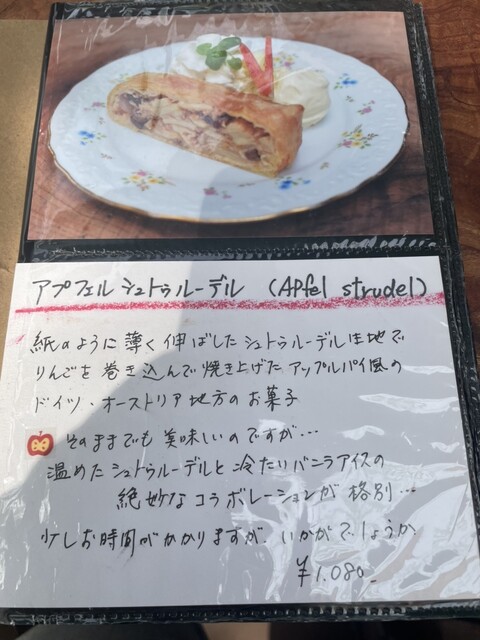 アプフェルシュトゥルーデル (Apfel strudel)
紙のように薄く伸ばしたシュトゥルーデル生地で
りんごを巻き込んで焼き上げたアップルパイ風の
ドイツ・オーストリア地方のお菓子
そのままでも美味しいのですが…
温めたシュトゥルーデルと冷たいバニラアイスの
絶妙なコラボレーションが格別…
少しお時間がかかりますが、いかがでしょうか
¥1.080-